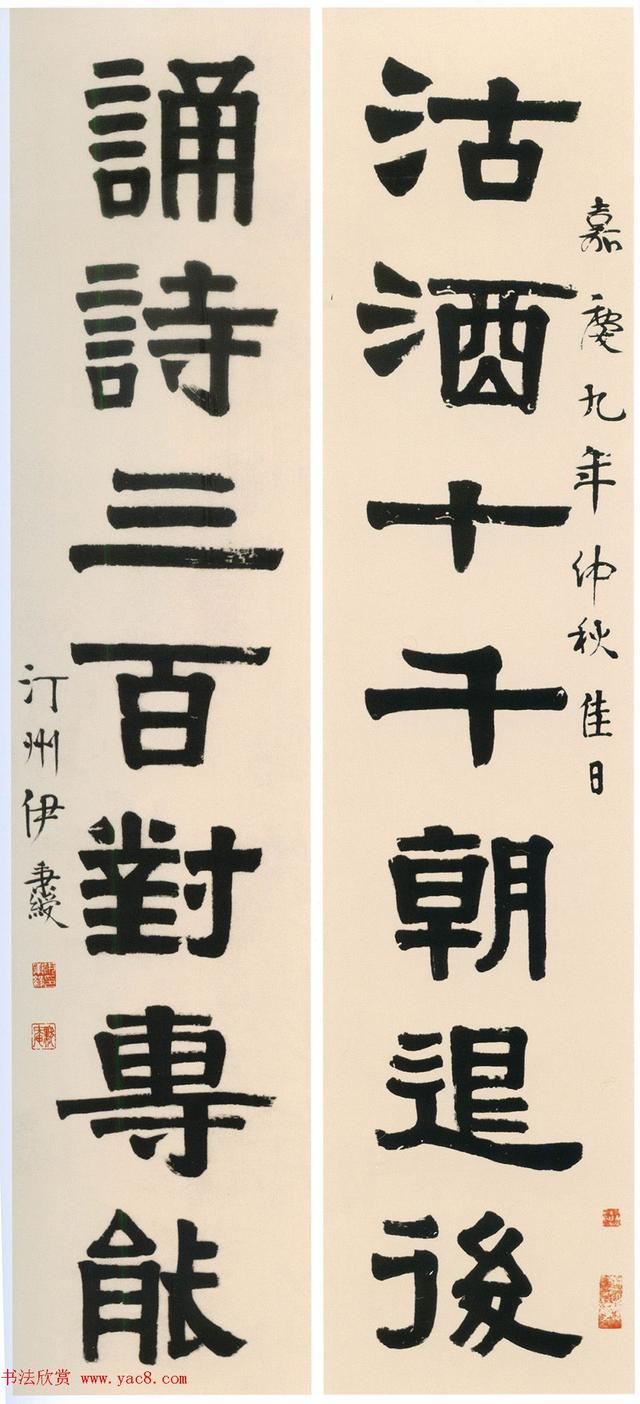 嘉慶九年仲秋佳日
沽酒十千朝退後
誦詩三百對專能
汀州伊秉綬
书法欣赏 www.yac8.com